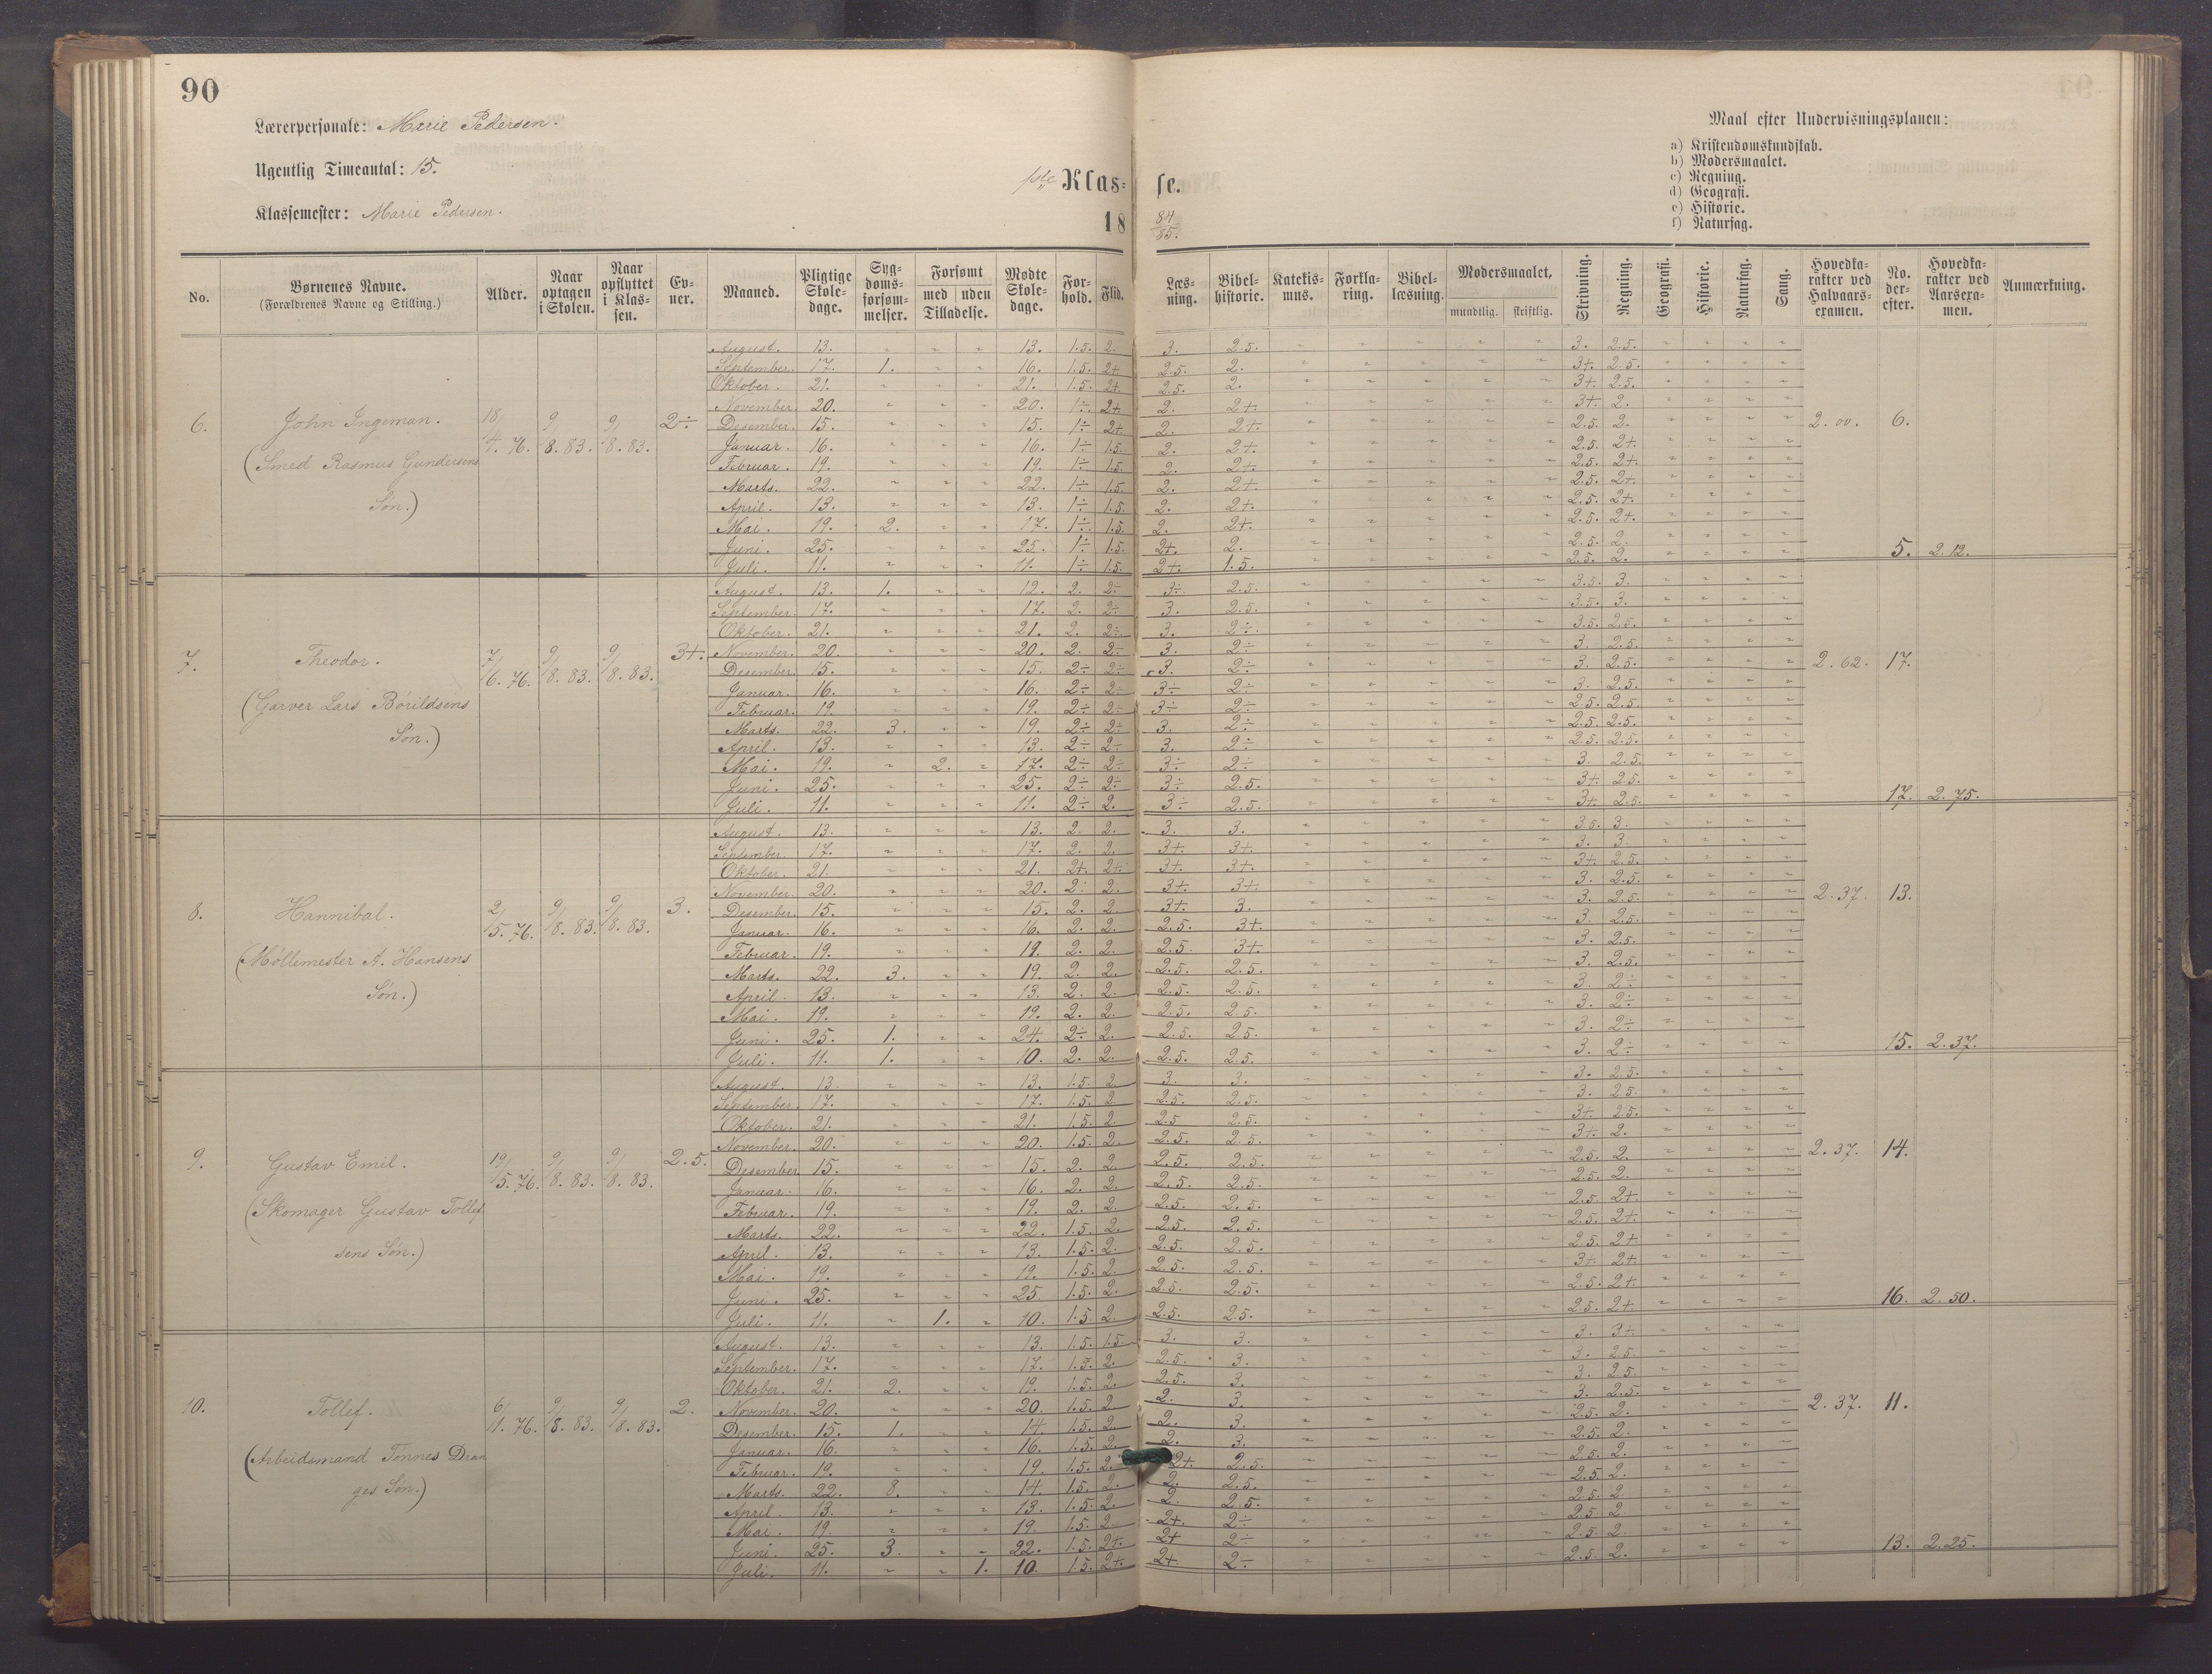 90
Lærerpersonale: Marie Pedersen.
Ugentlig Timeantal: 15.
Klassemester: Marie Pedersen.
1ste Klasse.
18 84/85.
Maal efter Undervisningsplanen:
a) Kristendomskundskab.
b) Modersmaalet.
c) Regning.
d) Geografi.
e) Historie.
f) Naturfag.
No. | Børnenes Navne. (Forældrenes Navne og Stilling.) | Alder. | Naar optagen i Skolen. | Naar opflyttet i Klassen. | Evner. | Maaned. | Pligtige Skoledage. | Sygdomsforsømmelser. | Forsømt med / uden Tilladelse. | Mødte Skoledage. | Forhold. | Flid. | Læsning. | Bibelhistorie. | Katekismus. | Forklaring. | Bibellæsning. | Modersmaalet, mundtlig. | skriftlig. | Skrivning. | Regning. | Geografi. | Historie. | Naturfag. | Sang. | Hovedkarakter ved Halvaarsexamen. | No. derefter. | Hovedkarakter ved Aarsexamen. | Anmærkning.
6. John Ingeman. (Smed Rasmus Gundersens Søn.) 18/4. 76. 9/8. 83. 9/8. 83. 2÷ 2.00. 6.
August. 13. " " " 13. 1.5. 2. 3. 2.5. 3. 2.5.
September. 17. 1. " " 16. 1.5. 2+. 2.5. 2. 3+. 2.5.
Oktober. 21. " " " 21. 1.5. 2+. 2.5. 2. 3+. 2.5.
November. 20. " " " 20. 1÷. 2+. 2. 2+. 3+. 2.
Desember. 15. " " " 15. 1÷ 2+. 2. 2+. 2.5. 2.
Januar. 16. " " " 16. 1÷ 1.5. 2. 2+. 2.5. 2+.
Februar. 19. " " " 19. 1÷ 1.5. 2. 2+. 2.5. 2+.
Marts. 22. " " " 22. 1÷ 1.5. 2. 2+. 2.5. 2+.
April. 13. " " " 13. 1÷ 1.5. 2. 2+. 2.5. 2+.
Mai. 19. 2. " " 17. 1÷. 1.5. 2. 2+. 2.5. 2+.
Juni. 25. " " " 25. 1÷ 1.5. 2+. 2. 2.5. 2.
Juli. 11. " " " 11. 1÷ 1.5. 2+. 1.5. 2.5. 2. 5. 2.12.
7. Theodor. (Garver Lars Bórildsens Søn.) 7/6. 76. 9/8. 83. 9/8. 83. 3+. 2.62. 17.
August. 13. 1. " " 12. 2. 2÷ 3÷. 2.5. 3.5. 3.
September. 17. " " " 17. 2. 2÷ 3. 2.5. 3.5. 3.
Oktober. 21. " " " 21. 2. 2÷. 3. 2÷. 3.5. 2.5.
November. 20. " " " 20. 2. 2÷ 3. 2÷ 3. 2.5.
Desember. 15. " " " 15. 2÷ 2÷ 3. 2÷ 3. 2.5.
Januar. 16. " " " 16. 2÷ 2÷ 3÷ 2÷ 3. 2.5.
Februar. 19. " " " 19. 2÷ 2÷ 3÷ 2÷ 2.5. 2.5.
Marts. 22. 3. " " 19. 2÷ 2÷ 3. 2÷ 2.5. 2.5.
April. 13. " " " 13. 2÷ 2÷ 3. 2÷ 2.5. 2.5.
Mai. 19. " 2. " 17. 2÷ 2÷ 3÷ 2÷ 3. 2.5.
Juni. 25. " " " 25. 2÷ 2÷ 3÷ 2.5. 3+. 2.5.
Juli. 11. " " " 11. 2÷ 2. 3÷ 2.5. 3+. 2.5. 17. 2.75.
8. Hannibal. (Møllemester A. Hansens Søn.) 2/5. 76. 9/8. 83. 9/8. 83. 3. 2.37. 13.
August. 13. " " " 13. 2. 2. 3. 3. 3.5. 3.
September. 17. " " " 17. 2. 2. 3+. 3+. 3. 3.
Oktober. 21. " " " 21. 2+. 2+. 3+. 3+. 3+. 2.5.
November. 20. " " " 20. 2. 2. 3+. 3+. 3. 2.5.
Desember. 15. " " " 15. 2. 2. 3+. 3. 3. 2.5.
Januar. 16. " " " 16. 2. 2. 2.5. 3+. 3. 2.5.
Februar. 19. " " " 19. 2. 2. 2.5. 3+. 3. 2.5.
Marts. 22. 3. " " 19. 2. 2. 2.5. 2.5. 3. 2.5.
April. 13. " " " 13. 2. 2. 2.5. 2.5. 3. 2÷
Mai. 19. " " " 19. 2. 2. 2.5. 2.5. 3. 2÷
Juni. 25. 1. " " 24. 2÷ 2. 2.5. 2.5. 3. 2÷
Juli. 11. 1. " " 10. 2. 2. 2.5. 2.5. 3. 2÷ 15. 2.37.
9. Gustav Emil. (Skomager Gustav Tollefsens Søn.) 19/5. 76. 9/8. 83. 9/8. 83. 2.5. 2.37. 14.
August. 13. " " " 13. 1.5. 2. 3. 3. 3. 2.5.
September. 17. " " " 17. 1.5. 2. 2.5. 2.5. 3. 2.5.
Oktober. 21. " " " 21. 1.5. 2. 2.5 2.5. 3+. 2.5.
November. 20. " " " 20. 1.5. 2. 2.5. 2.5. 3+. 2.
Desember. 15. " " " 15. 2. 2. 2.5. 2.5. 2.5. 2.
Januar. 16. " " " 16. 2. 2. 2.5. 2.5. 2.5. 2.
Februar. 19. " " " 19. 2. 2. 2.5. 2.5. 2.5. 2+.
Marts. 22. " " " 22. 1.5. 2. 2.5. 2.5. 2.5. 2+.
April. 13. " " " 13. 1.5. 2. 2.5. 2.5. 2.5. 2+
Mai. 19. " " " 19. 1.5. 2. 2.5. 2.5. 3+. 2+.
Juni. 25. " " " 25. 1.5. 2. 2.5. 2.5. 2.5. 2+.
Juli. 11. " 1. " 10. 1.5 2. 2.5. 2.5. 2.5. 2+. 16. 2.50.
10. Tollef. (Arbeidsmand Tønnes Dranges Søn.) 6/11. 76. 9/8. 83. 9/8. 83. 2. 2.37. 11.
August. 13. " " " 13. 1.5. 1.5. 3. 3. 3. 3+.
September. 17. " " " 17. 1.5. 2. 2.5. 3. 3. 2.5.
Oktober. 21. 2. " " 19. 1.5. 2. 2.5. 3. 3. 2.5.
November. 20. " " " 20. 1.5. 2 2. 3. 3. 2.5.
Desember. 15. 1. " " 14. 1.5. 2. 2. 3. 2.5. 2.
Januar. 16. " " " 16. 1.5. 2. 2. 3. 2.5. 2.
Februar. 19. " " " 19. 1.5. 2. 2+. 2.5. 2.5. 2.
Marts. 22. 8. " " 14. 1.5. 2. 2. 2.5. 2.5. 2.
April. 13. " " " 13. 1.5. 2. 2. 2.5. 2.5. 2
Mai. 19. " " " 19. 1.5. 2. 2+. 2÷ 2.5 2
Juni. 25. 3. " " 22. 1.5. 2+. 2+ 2÷ 2.5. 2
Juli. 11. " " 1. 10. 1.5 2+. 2+. 2÷ 2.5 2. 13. 2.25.